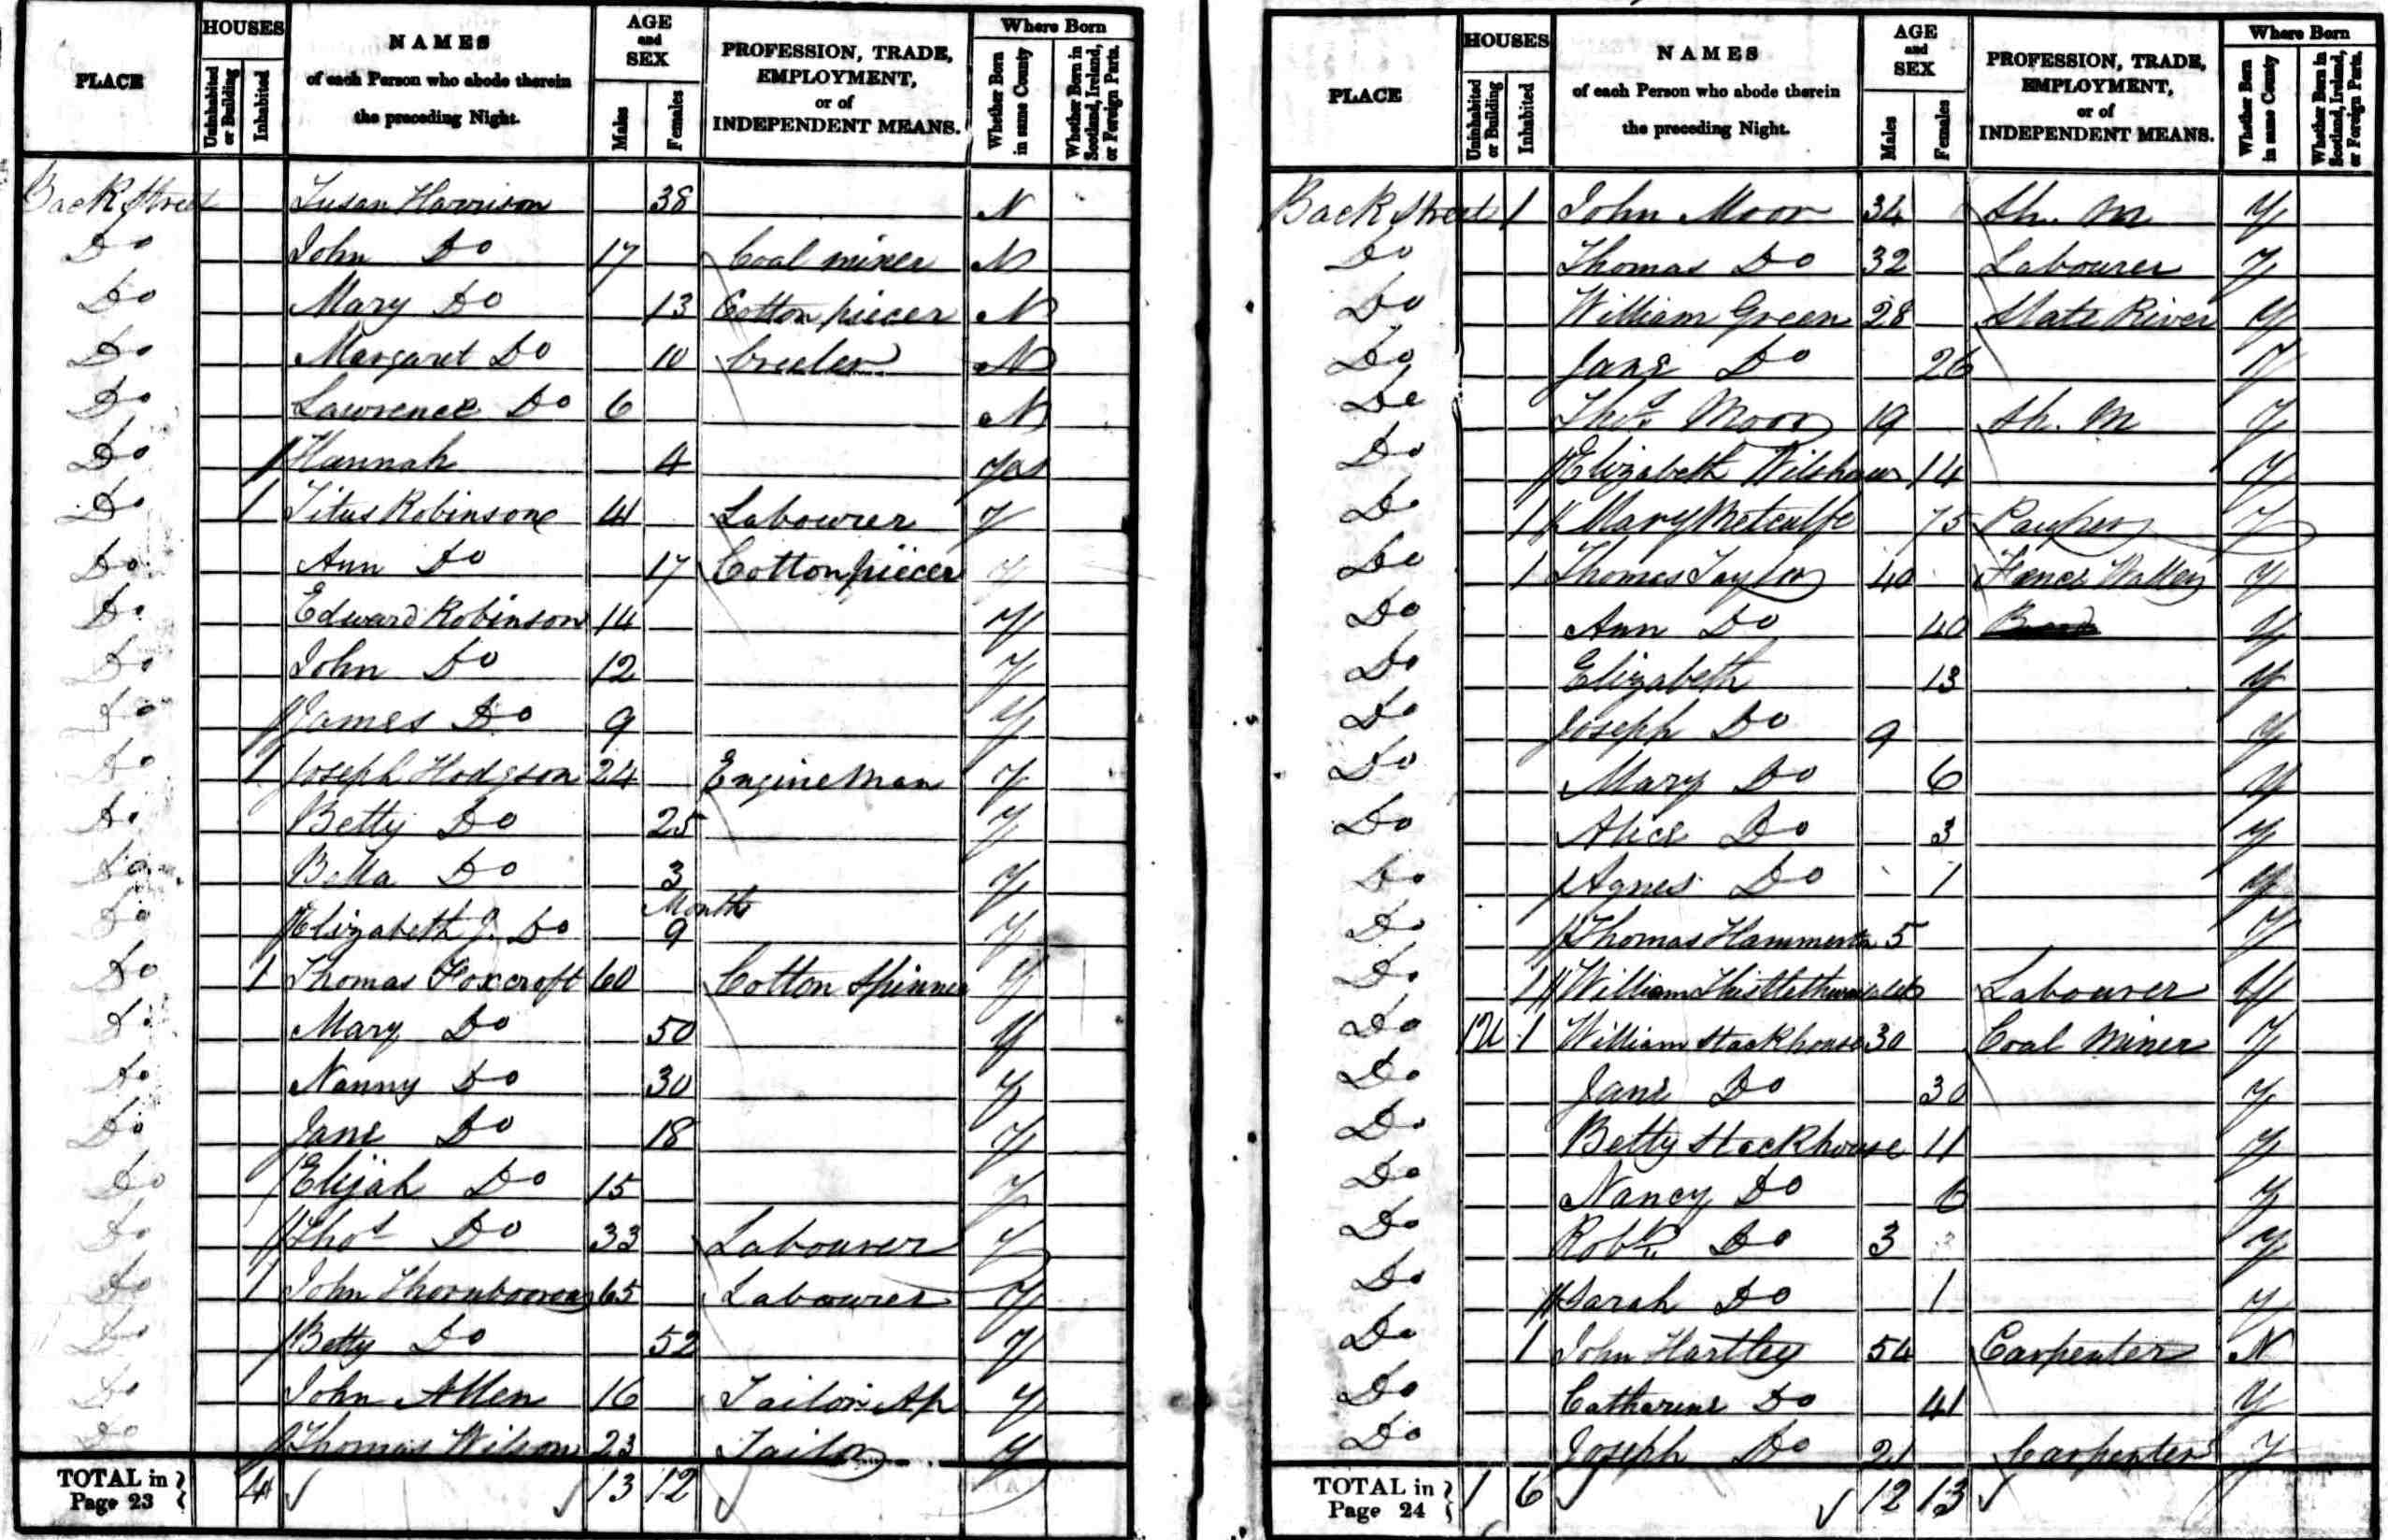 PLACE HOUSES Uninhabited or Building Inhabited NAMES of each Person who abode therein the preceding Night. AGE and SEX Males Females PROFESSION, TRADE, EMPLOYMENT, or of INDEPENDENT MEANS. Where Born Whether Born in same County Whether Born in Scotland, Ireland, or Foreign Parts.
Back Street Susan Harrison 38 N
Do John Do 17 Coal miner N
Do Mary Do 13 Cotton piecer N
Do Margaret Do 10 Creeler N
Do Lawrence Do 6 N
Do Hannah 4 Yes
Do 1 Titus Robinson 41 Labourer Y
Do Ann Do 17 Cotton piecer Y
Do Edward Robinson 14 Y
Do John Do 12 Y
Do James Do 9 Y
Do 1 Joseph Hodgson 24 Engine Man Y
Do Betty Do 25 Y
Do Bella Do 3 Y
Months
Do Elizabeth J. Do 9 Y
Do 1 Thomas Foxcroft 60 Cotton Spinner Y
Do Mary Do 50 Y
Do Nanny Do 30 Y
Do Jane Do 18 Y
Do Elijah Do 15 Y
Do Thos Do 33 Labourer Y
Do 1 John 65 Labourer Y
Do Betty Do 52 Y
Do John Allen 16 Tailor Ap Y
Do Thomas Wilson 23 Tailor Y
TOTAL in Page 23 4 13 12
PLACE HOUSES Uninhabited or Building Inhabited NAMES of each Person who abode therein the preceding Night. AGE and SEX Males Females PROFESSION, TRADE, EMPLOYMENT, or of INDEPENDENT MEANS. Where Born Whether Born in same County Whether Born in Scotland, Ireland, or Foreign Parts.
Back Street 1 John Moor 34 Sh. M Y
Do Thomas Do 32 Labourer Y
Do William Green 28 Slate River Y
Do Jane Do 26 Y
Do Thos. Moor 19 Sh. M Y
Do Elizabeth Wilshaw 14 Y
Do 1 Mary Metcalfe 75 Pauper Y
Do 1 Thomas Taylor 40 Fence Waller Y
Do Ann Do 40 Y
Do Elizabeth 13 Y
Do Joseph Do 9 Y
Do Mary Do 6 Y
Do Alice Do 3 Y
Do Agnes Do 1 Y
Do Thomas Hammerton 5 Y
Do 1 William Labourer Y
Do 1U 1 William Stackhouse 30 Coal Miner Y
Do Jane Do 30 Y
Do Betty Stackhouse 11 Y
Do Nancy Do 6 Y
Do Robt. Do 3 Y
Do Sarah Do 1 Y
Do 1 John Hartley 54 Carpenter N
Do Catharine Do 41 Y
Do Joseph Do 21 Carpenter Y
TOTAL in Page 24 1 6 12 13